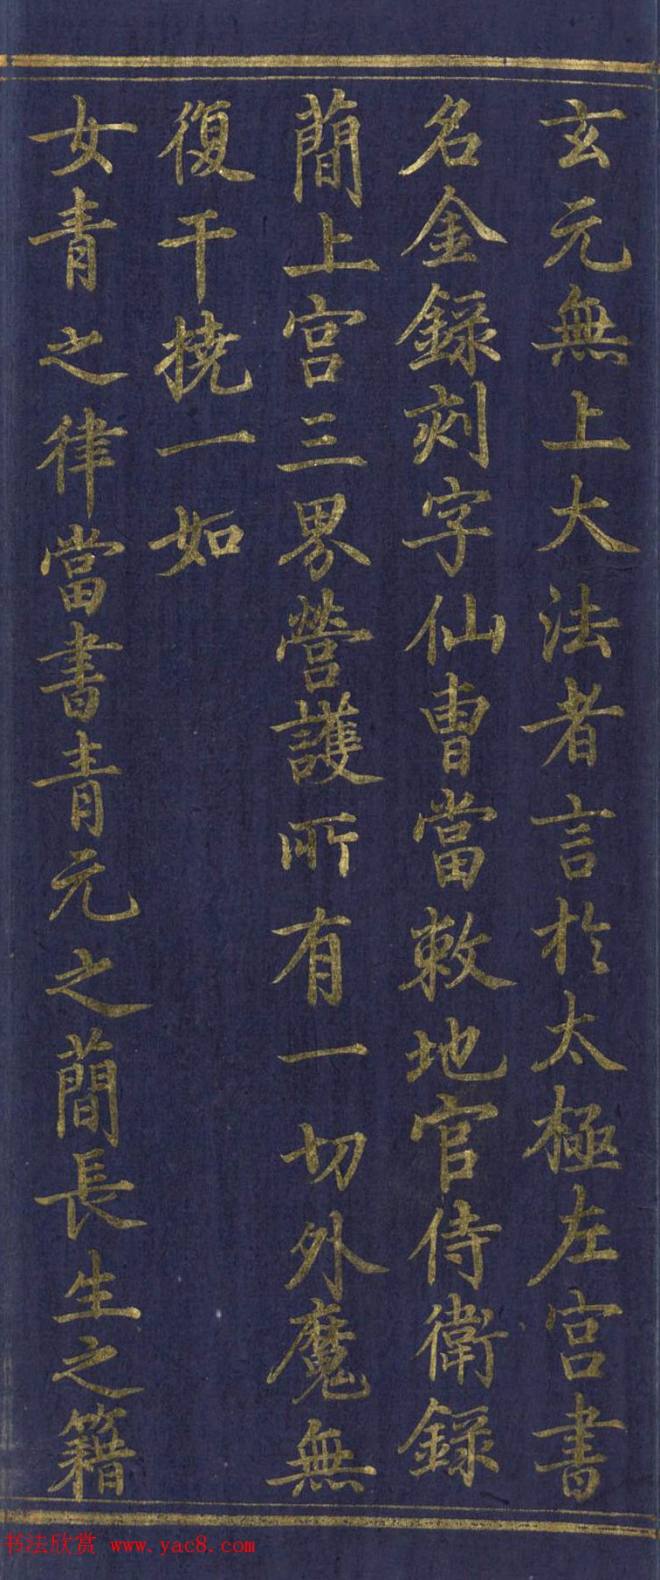 玄元無上大法者言於太極左宫書
名金録刻字仙曹當敕地官侍衛録
蕳上宫三界營護所有一切外魔無
復干撓一如
女青之律當書青元之蕳長生之籍
书法欣赏 www.yac8.com